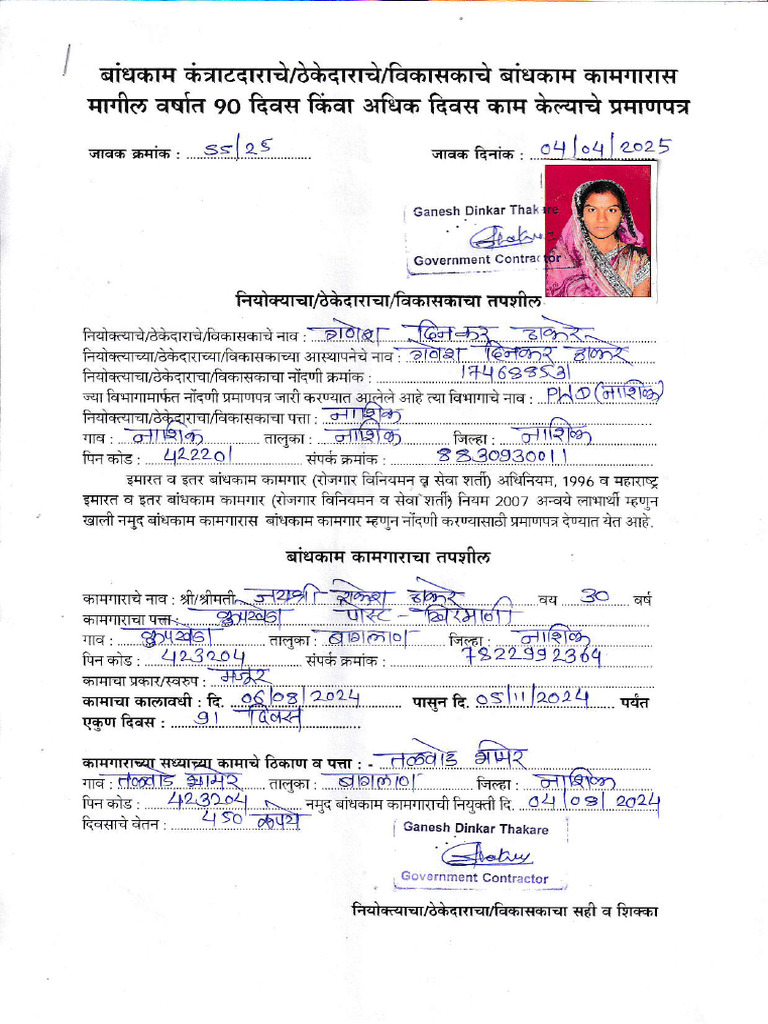 बांधकाम कंत्राटदाराचे/ठेकेदाराचे/विकासकाचे बांधकाम कामगारास
मागील वर्षात 90 दिवस किंवा अधिक दिवस काम केल्याचे प्रमाणपत्र
जावक क्रमांक : 55/25 जावक दिनांक : 04/04/2025
Ganesh Dinkar Thakare
Government Contractor
नियोक्याचा/ठेकेदाराचा/विकासकाचा तपशील
नियोक्त्याचे/ठेकेदाराचे/विकासकाचे नाव : गणेश दिनकर ठाकरे
नियोक्त्याच्या/ठेकेदाराच्या/विकासकाच्या आस्थापनेचे नाव : गणेश दिनकर ठाकरे
नियोक्त्याचा/ठेकेदाराचा/विकासकाचा नोंदणी क्रमांक : 174688531
ज्या विभागामार्फत नोंदणी प्रमाणपत्र जारी करण्यात आलेले आहे त्या विभागाचे नाव : PWD (नाशिक)
नियोक्त्याचा/ठेकेदाराचा/विकासकाचा पत्ता : नाशिक
गाव : नाशिक तालुका : नाशिक जिल्हा : नाशिक
पिन कोड : 422201 संपर्क क्रमांक : 8830930011
इमारत व इतर बांधकाम कामगार (रोजगार विनियमन व सेवा शर्ती) अधिनियम, 1996 व महाराष्ट्र
इमारत व इतर बांधकाम कामगार (रोजगार विनियमन व सेवा शर्ती) नियम 2007 अन्वये लाभार्थी म्हणुन
खाली नमुद बांधकाम कामगारास बांधकाम कामगार म्हणुन नोंदणी करण्यासाठी प्रमाणपत्र देण्यात येत आहे.
बांधकाम कामगाराचा तपशील
कामगाराचे नाव : श्री/श्रीमती जयश्री राकेश ठाकरे वय 30 वर्ष
कामगाराचा पत्ता : कुपखेडा पोस्ट - खिरमाणी
गाव : कुपखेडा तालुका : बागलाण जिल्हा : नाशिक
पिन कोड : 423204 संपर्क क्रमांक : 7822992364
कामाचा प्रकार/स्वरुप : मजूर
कामाचा कालावधी : दि. 06/08/2024 पासुन दि. 05/11/2024 पर्यंत
एकुण दिवस : 91 दिवस
कामगाराच्या सध्याच्या कामाचे ठिकाण व पत्ता : - तळवाडे भामेर
गाव : तळवाडे भामेर तालुका : बागलाण जिल्हा : नाशिक
पिन कोड : 423204 नमुद बांधकाम कामगाराची नियुक्ती दि. 04/08/2024
दिवसाचे वेतन : 450 रूपये
Ganesh Dinkar Thakare
Government Contractor
नियोक्त्याचा/ठेकेदाराचा/विकासकाचा सही व शिक्का